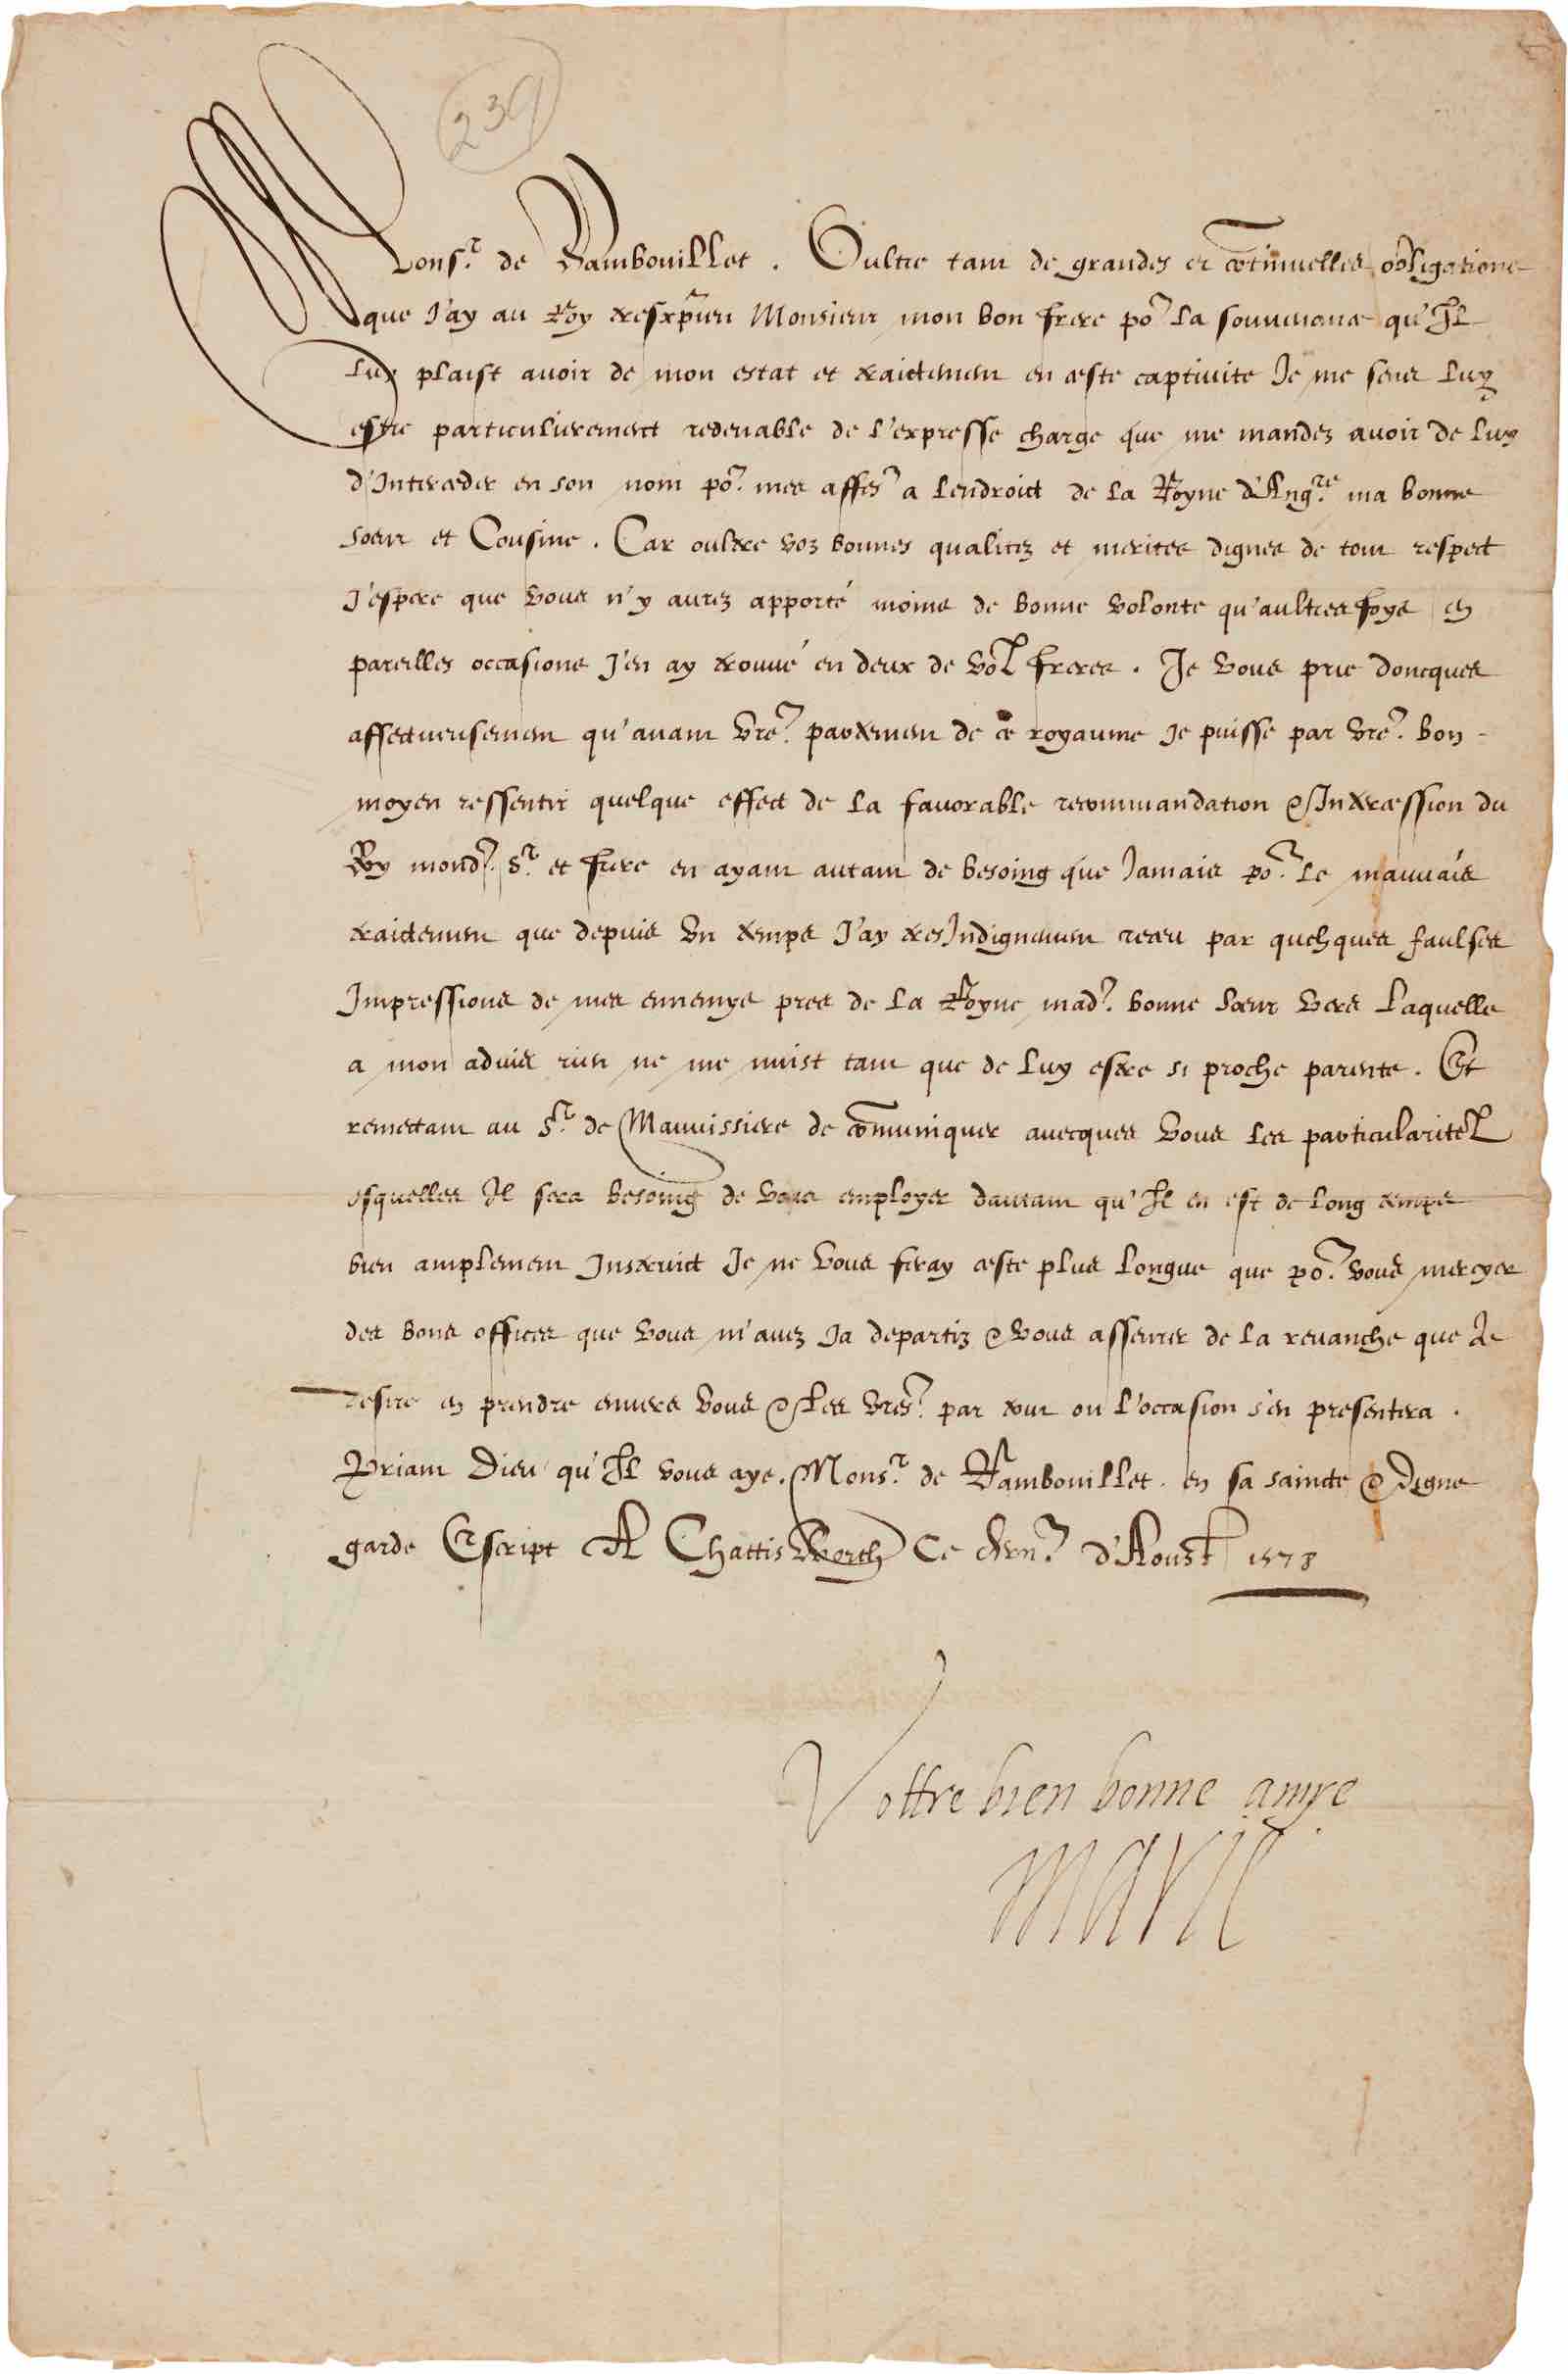 239
Monsr. de Rambouillet. Oultre tant de grandes et cõtinuelles obligations
que J'ay au Roy tresxp̃ien Monsieur mon bon frere põr la souvenance qu'Il
luy plaist avoir de mon estat et traictement en ceste captivite Je me sens luy
estre particulierement redevable de l'expresse charge que me mandez avoir de luy
d'Interceder en son nom põr. mes affẽs a lendroict de la Royne d'Angre. ma bonne
soeur et Cousine. Car oultre voz bonnes qualitez et merites dignes de tout respect
J'espere que vous n'y aurez apporté moins de bonne volonte qu'aultresfoys en
pareilles occasions J'en ay trouvé en deux de voz freres. Je vous prie doncques
affectueusement qu'avant vrẽ. partement de ce royaume Je puisse par vrẽ. bon
moyen ressentir quelque effect de la favorable recommandation & Intercession du
Roy mond. Sr. et frere en ayant autant de besoing que Jamais põr. le mauvais
traictement que depuis un temps J'ay tresIndignement receu par quelques faulses
Impressions de mes ennemys pres de la Royne mad. bonne soeur vers laquelle
a mon advis rien ne me nuist tant que de luy estre si proche parente. Et
remettant au Sr. de Mauvissiere de cõmuniquer avecques vous les particularitez
esquelles Il sera besoing de vous employer dautant qu'Il en est de long temps
bien amplement Instruict Je ne vous feray ceste plus longue que põr. vous mercyer
des bons offices que vous m'avez Ja departiz & vous asseurer de la revanche que Je
desire en prendre envers vous & les vrẽs. par tout ou l'occasion s'en presentera.
Priant Dieu qu'Il vous aye. Monsr. de Rambouillet. en sa saincte & digne
garde Escript A Chattisworth Ce dern. d'Aoust 1578
Vottre bien bonne amye
Marie